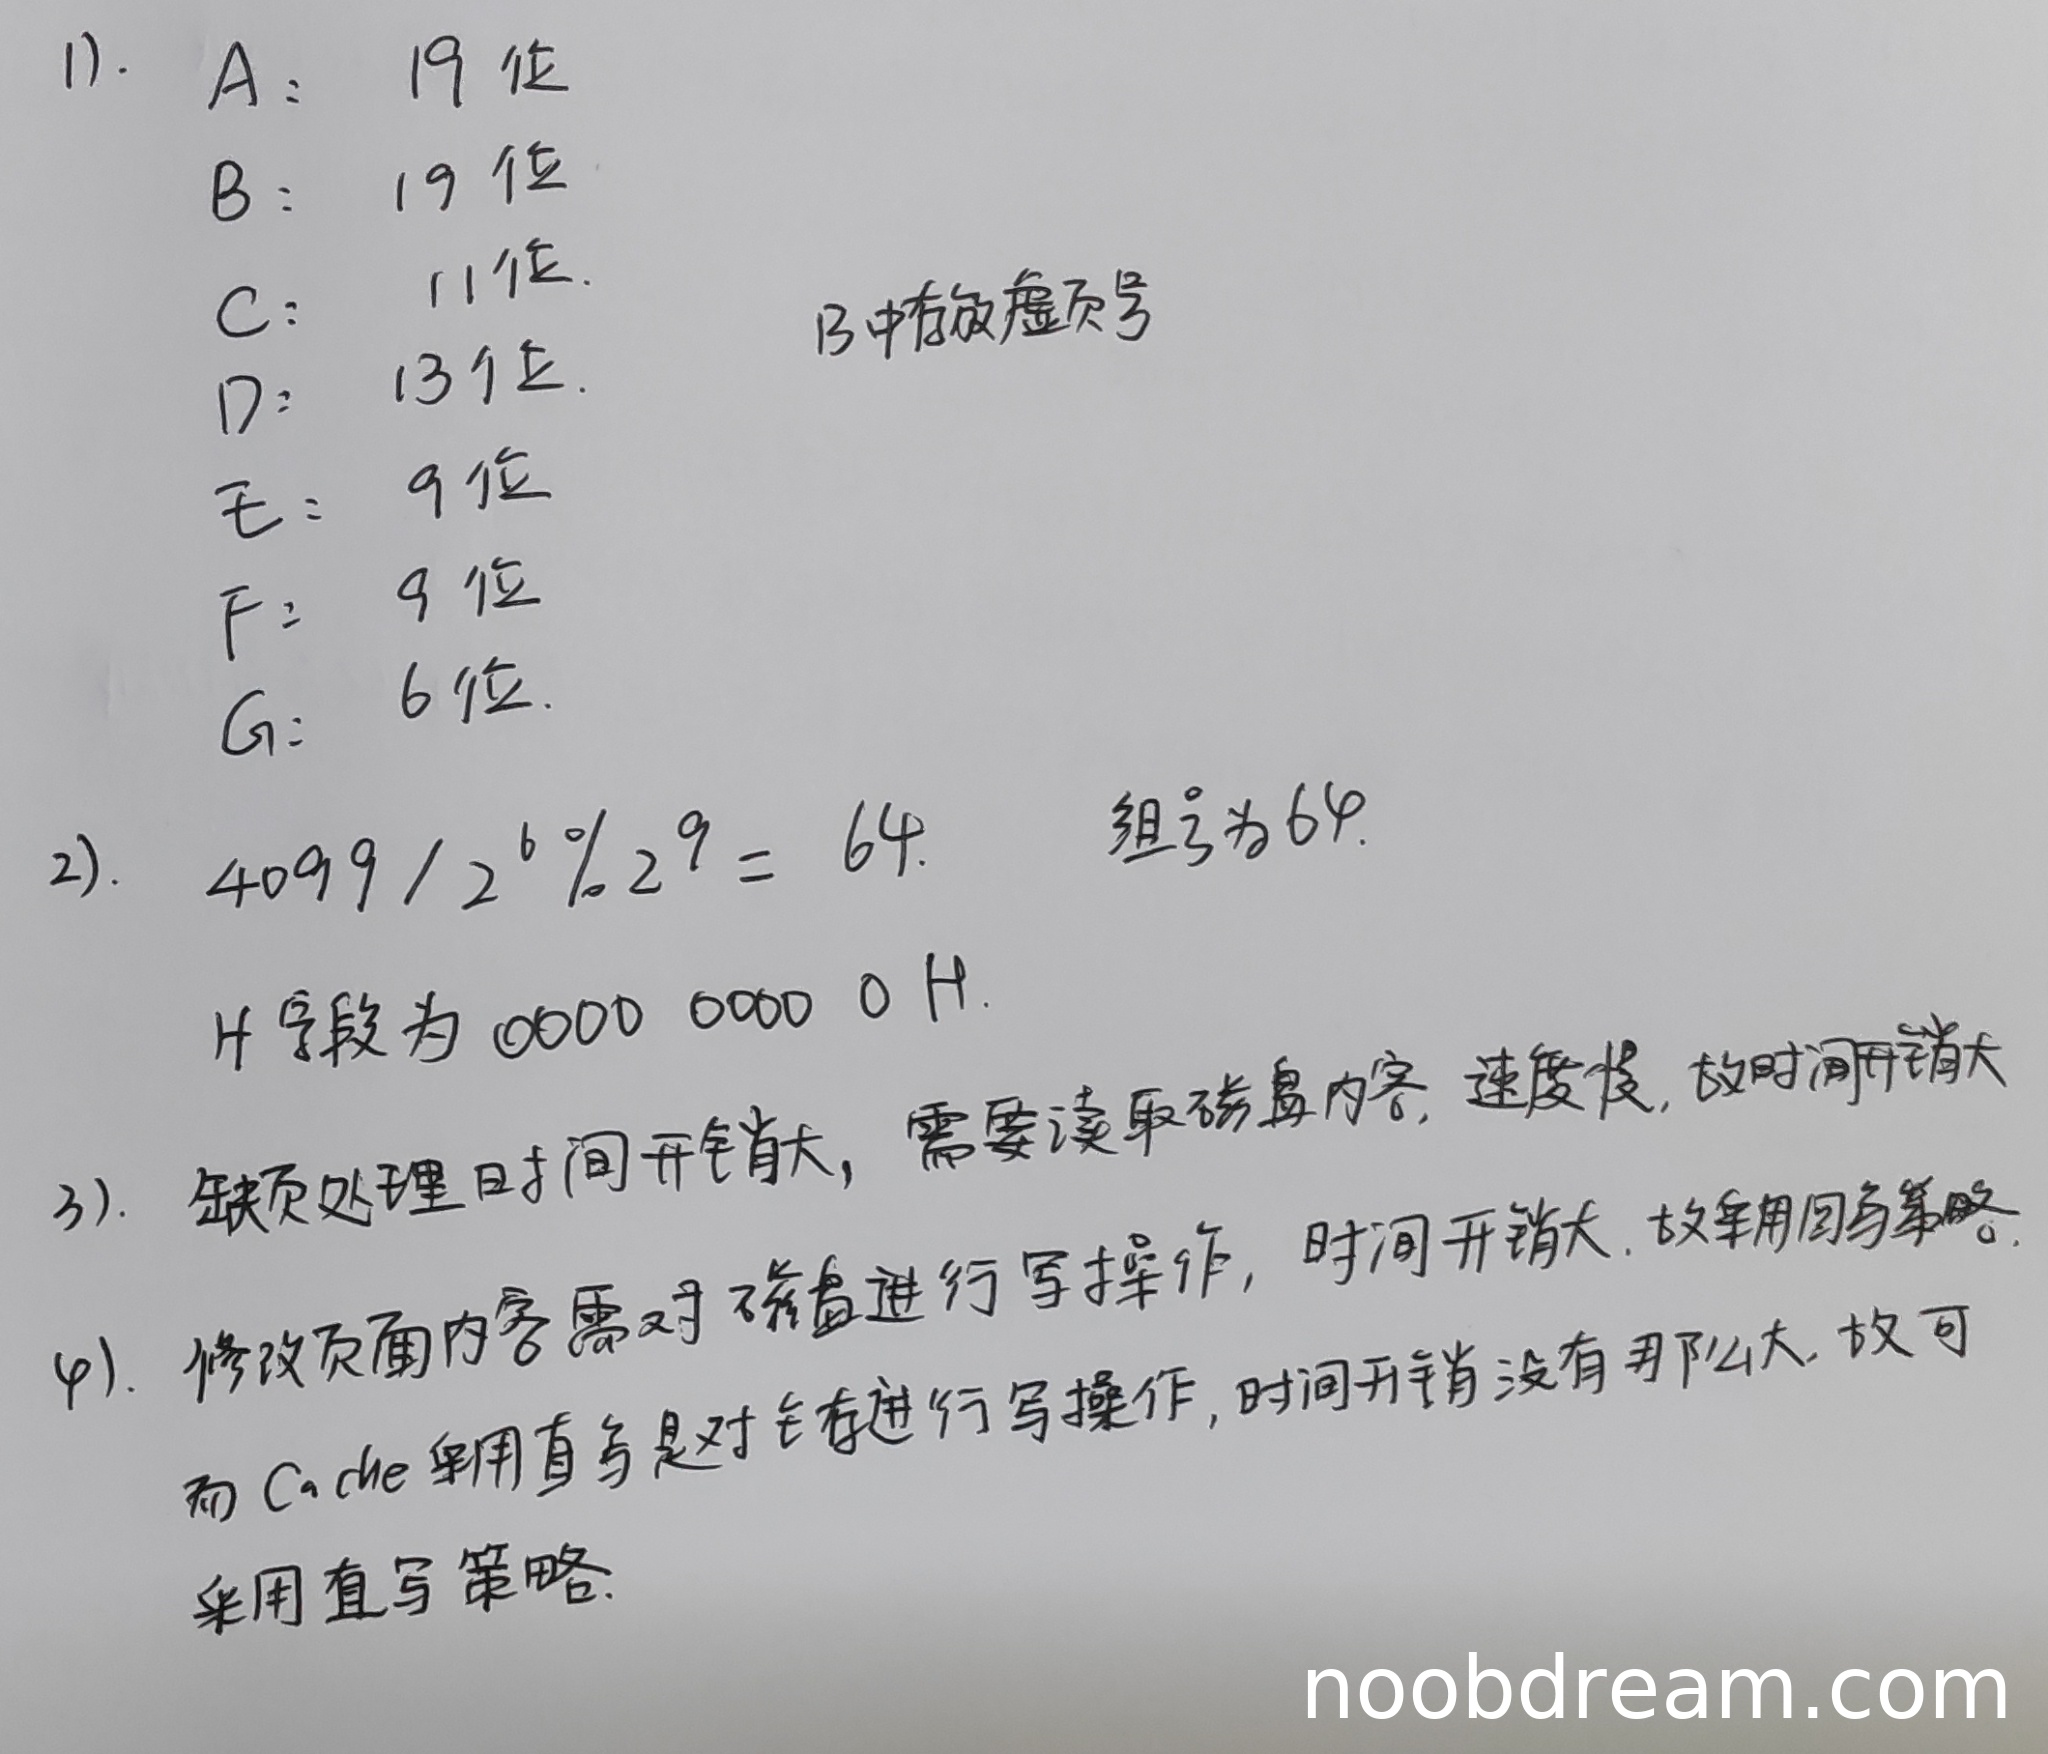 1). A: 19位
B: 19位
C: 11位.
B中存放虚页号
D: 13位.
E: 9位
F: 9位
G: 6位.
2). 4099 / 2^6 % 2^9 = 64. 组号为64.
H字段为 0000 0000 0 H.
3). 缺页处理时间开销大, 需要读取磁盘内容, 速度慢, 故时间开销大
4). 修改页面内容需对磁盘进行写操作, 时间开销大. 故采用回写策略.
而Cache采用直写是对主存进行写操作, 时间开销没有那么大. 故可
采用直写策略.
noobdream.com